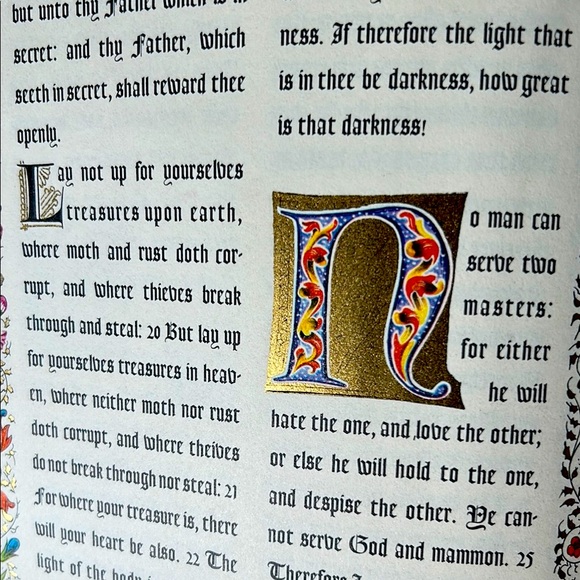 but unto thy Father which is in
secret: and thy Father, which
seeth in secret, shall reward thee
openly.
Lay not up for yourselves
treasures upon earth,
where moth and rust doth cor-
rupt, and where thieves break
through and steal: 20 But lay up
for yourselves treasures in heav-
en, where neither moth nor rust
doth corrupt, and where theives
do not break through nor steal: 21
For where your treasure is, there
will your heart be also. 22 The
light of the body
ness. If therefore the light that
is in thee be darkness, how great
is that darkness!
No man can
serve two
masters:
for either
he will
hate the one, and love the other;
or else he will hold to the one,
and despise the other. Ye can-
not serve God and mammon. 25
Therefore I